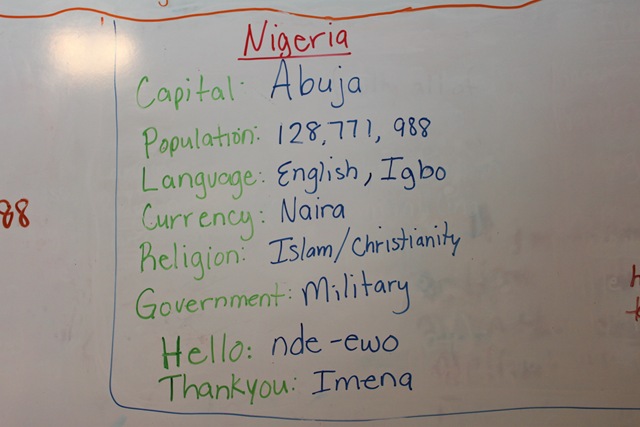 Nigeria
Capital: Abuja
Population: 128,771, 988
Language: English, Igbo
Currency: Naira
Religion: Islam/Christianity
Government: Military
Hello: nde-ewo
Thankyou: Imena
88